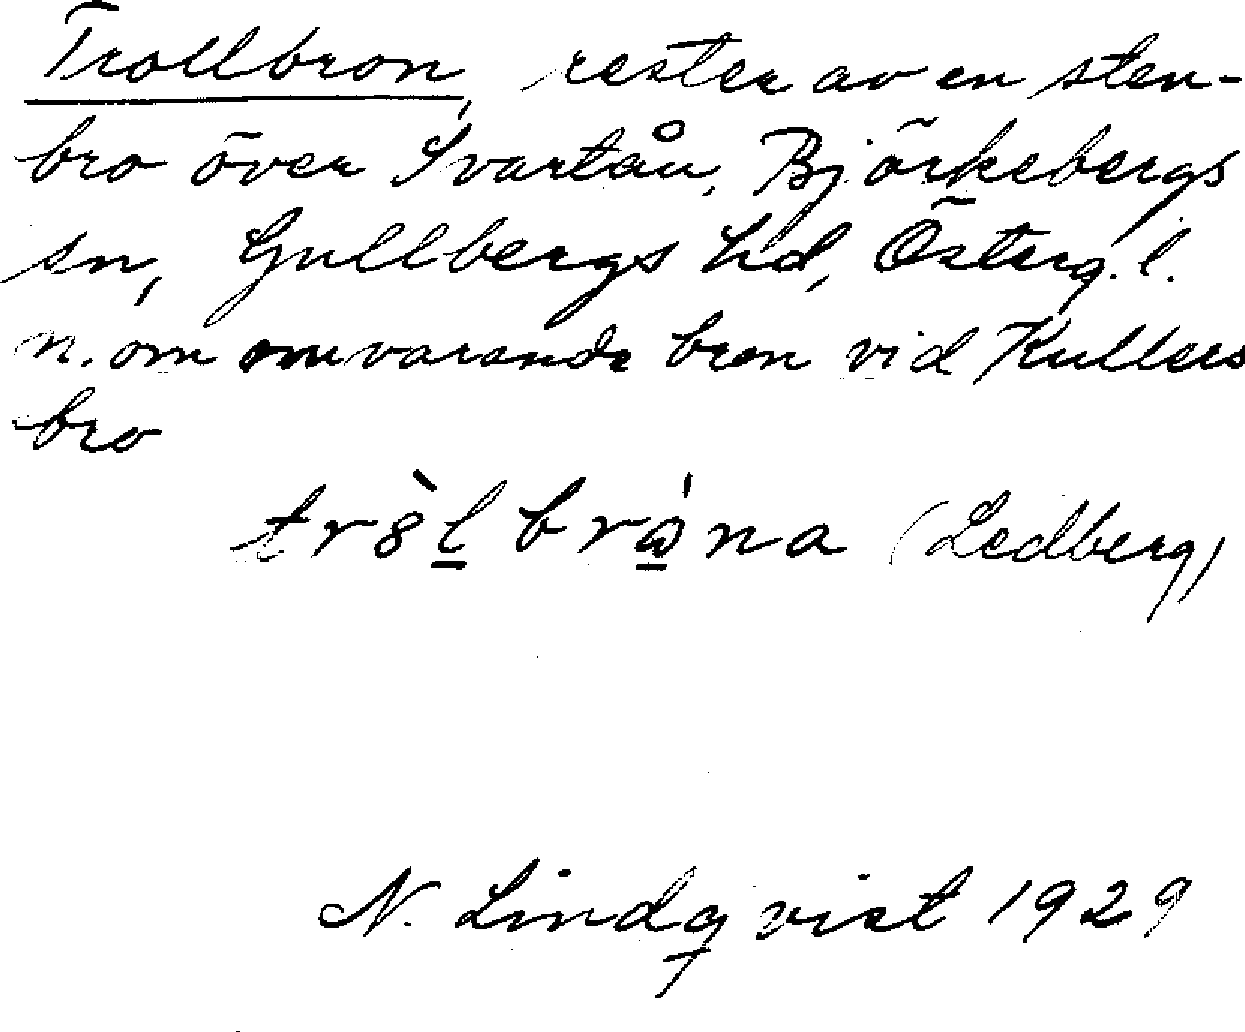 Trollbron, rester av en sten-
bro över Svartån, Björkebergs
sn, Gullbergs hd, Österg. l.
n. om omvarande bron vid Kullers
bro
(Ledberg)
N. Lindqvist 1929